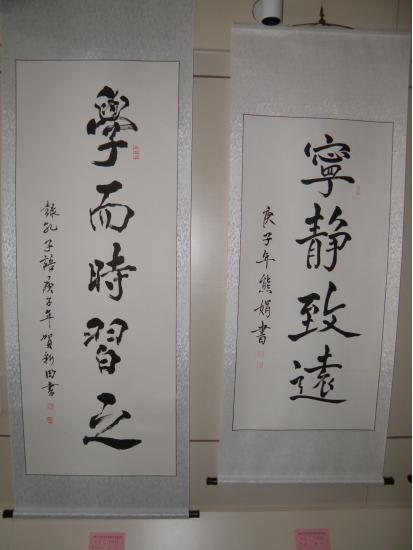 學而時習之
錄孔子語庚子年賀新田書
寧靜致遠
庚子年熊娟書